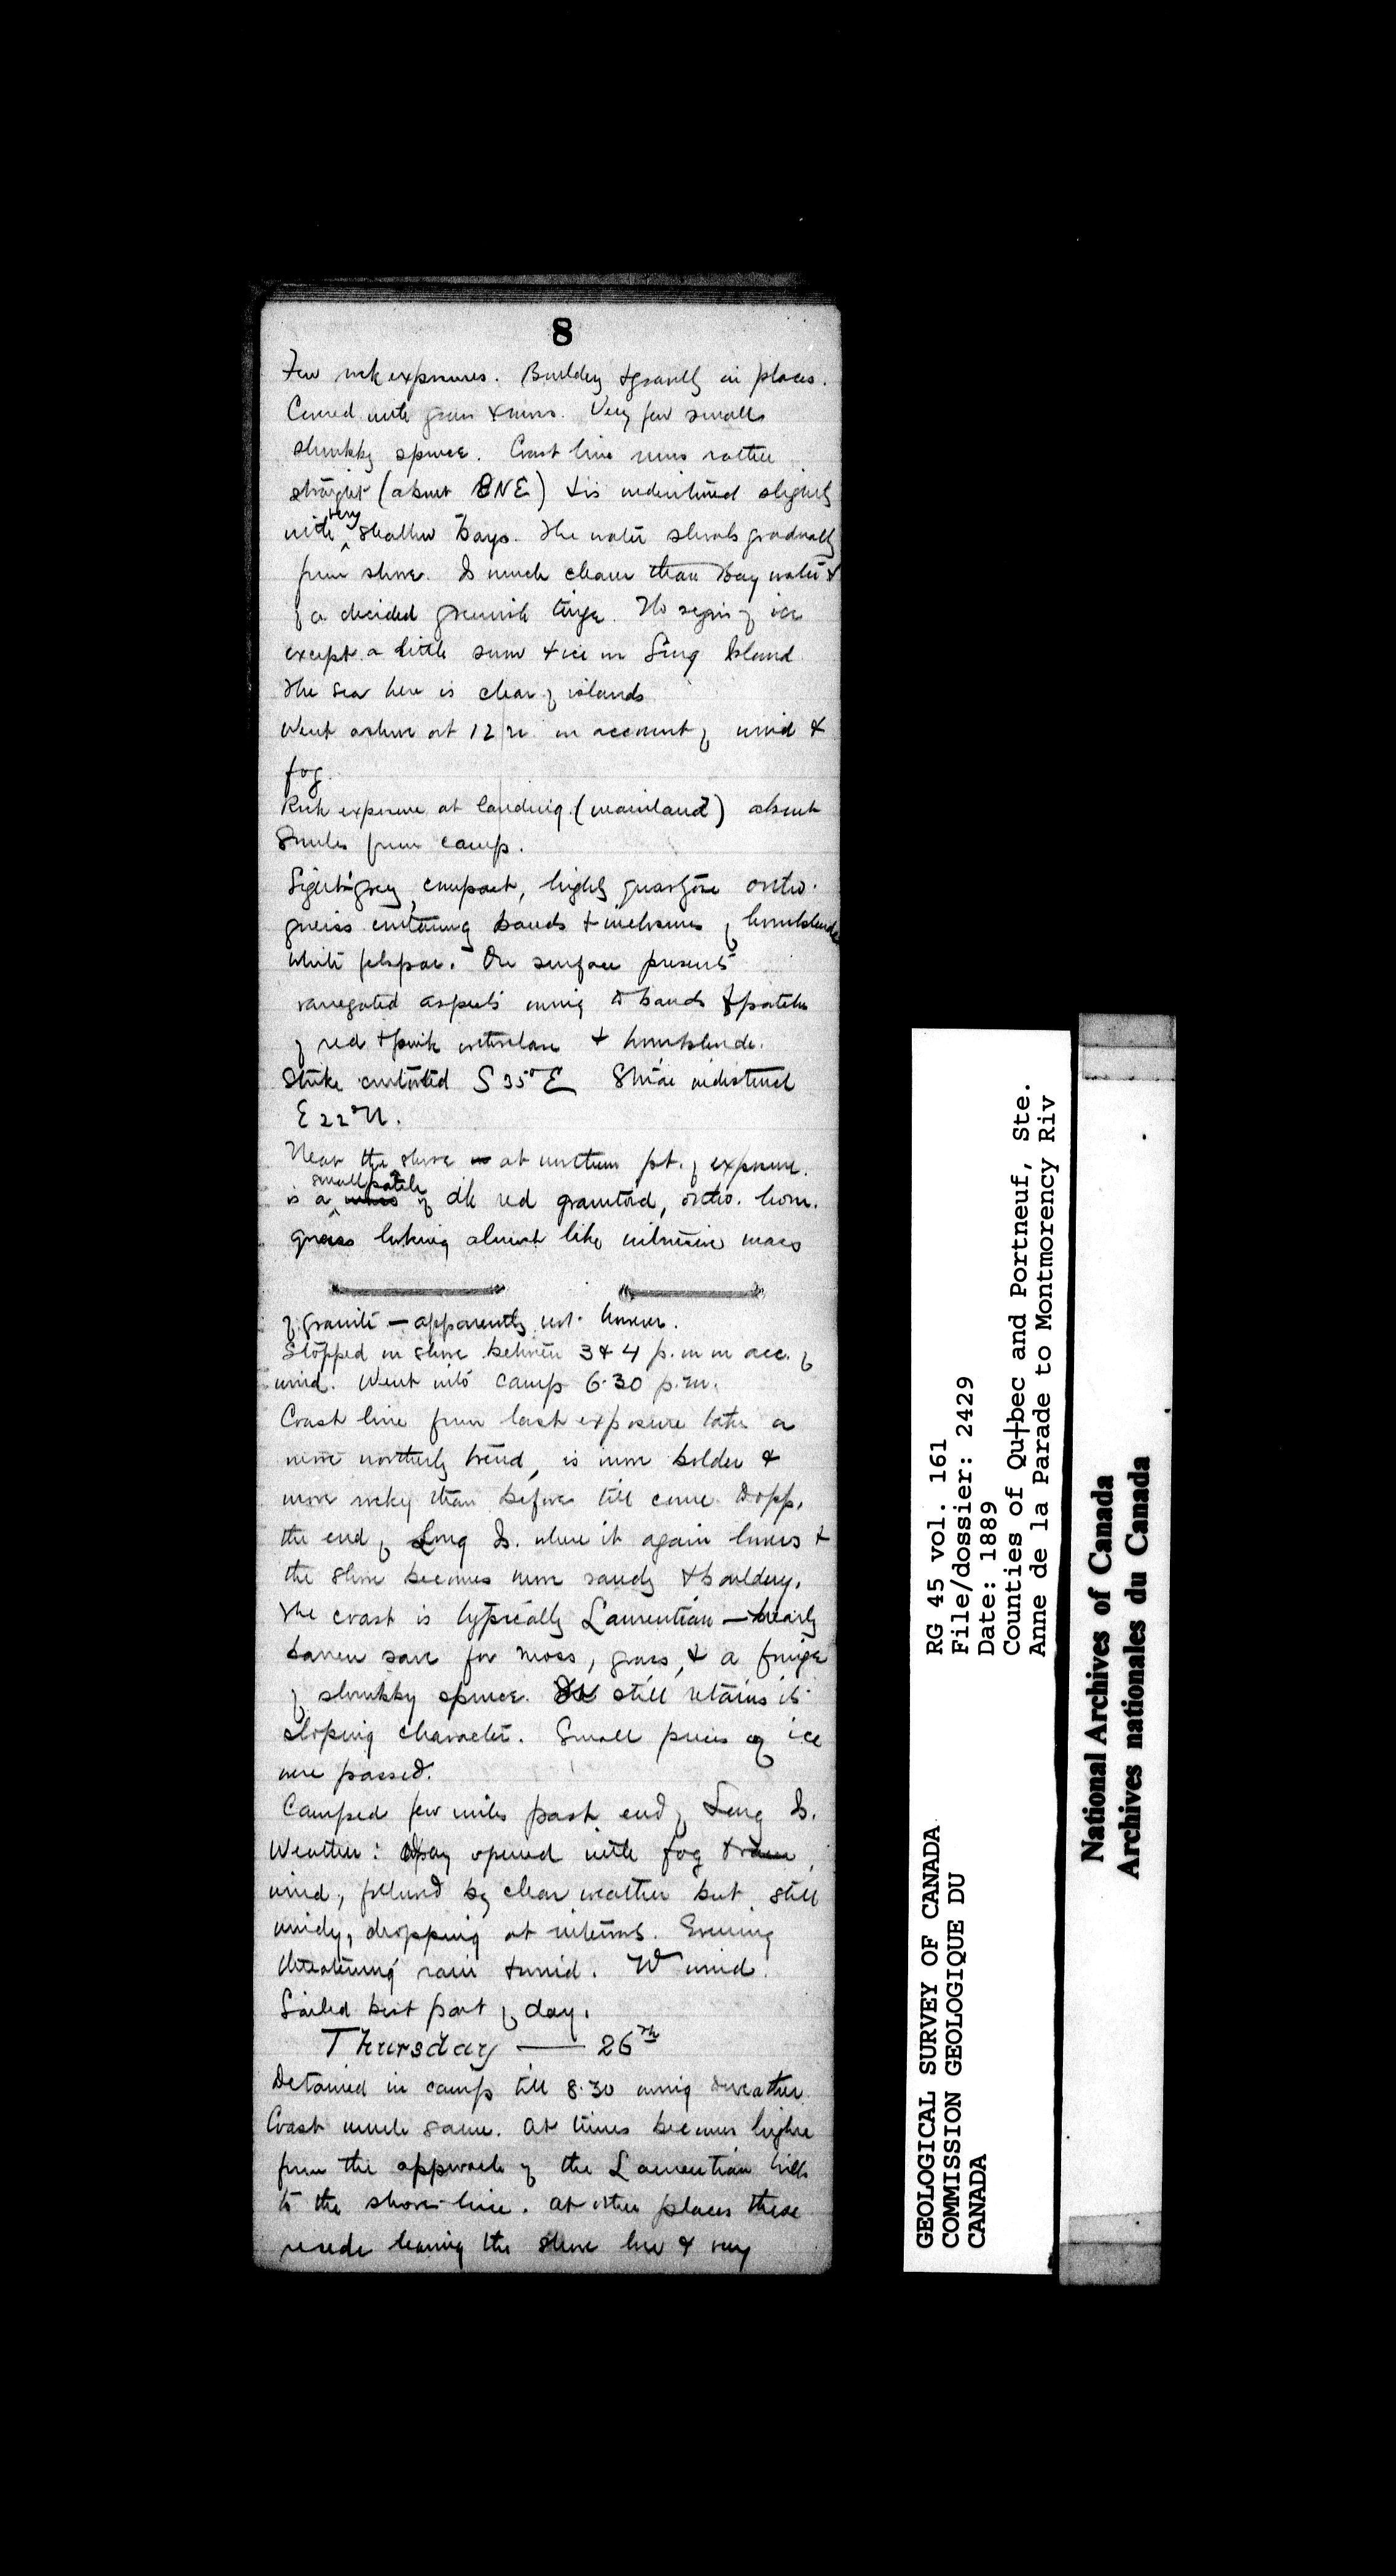 8
Few rock exposures. Bouldery & gravelly in places.
Covered with grass & moss. Very few small
shrubby spruce. Coast line runs rather
straight (about NE) & is indentured slightly
with very shallow bays. The water shoals gradually
from shore. Is much clearer than Bay water &
of a decided greenish tinge. No signs of ice
except a little snow & ice on Long Island
The sea here is clear of islands
Went ashore at 12 m. on account of wind &
fog.
Rock exposure at landing (mainland) about
8 miles from camp.
Light-grey, compact, highly quartzose ortho.
gneiss containing bands & inclusions of hornblende
white felspar. One surface presents
variegated aspect owing to bands & patches
of red & pink orthoclase & hornblende.
Strike contorted S 35° E Striae indistinct
E 22° N.
Near the shore at northern pt. of exposure
is a small patch of dk red granitoid, ortho. horn.
gneiss looking almost like intrusive mass
of granite — apparently not however.
Stopped on shore between 3 & 4 p.m on acc. of
wind. Went into camp 6.30 p.m.
Coast line from last exposure takes a
more northerly trend, is more bolder &
more rocky than before till come to opp.
the end of Long Is. where it again lowers &
the shore becomes more sandy & bouldery.
The coast is typically Laurentian — nearly
barren save for moss, grass, & a fringe
of shrubby spruce. still retains its
sloping character. Small pieces of ice
were passed.
Camped few miles past end of Long Is.
Weather: Day opened with fog &
wind, followed by clear weather but still
windy, dropping at intervals. Evening
threatening rain & wind. W wind.
Sailed best part of day.
Thursday — 26th
Detained in camp till 8.30 owing to weather.
Coast much same. At times becomes higher
from the approach of the Laurentian hills
to the shore-line. At other places these
recede leaving the shore low & very
RG 45 vol. 161
File/dossier: 2429
Date: 1889
Counties of Qu†bec and Portneuf, Ste.
Anne de la Parade to Montmorency Riv
GEOLOGICAL SURVEY OF CANADA
COMMISSION GEOLOGIQUE DU
CANADA
National Archives of Canada
Archives nationales du Canada